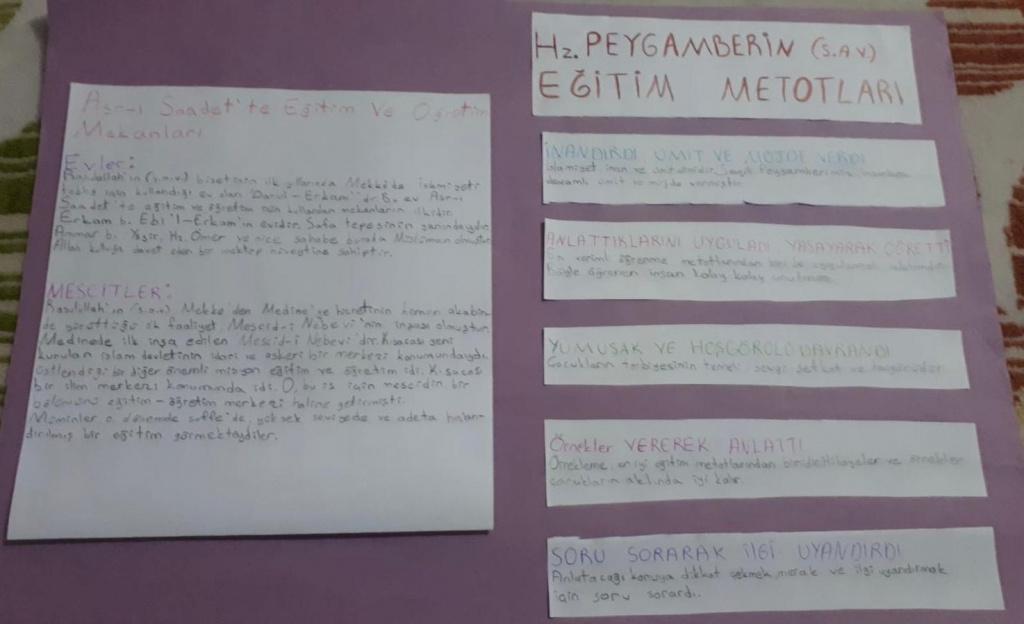 Asr-ı Saadet'te Eğitim Ve Öğretim
Mekanları
Evler:
Rasulullah'ın (s.a.v) bisetinin ilk yıllarında Mekke'de İslamiyeti
tebliğ için kullandığı ev olan "Darul-Erkam" dır. Bu ev Asr-ı
Saadet'te eğitim ve öğretim için kullanılan mekanların ilkidir.
Erkam b. Ebi'l-Erkam'ın evidir. Safa tepesinin yanındaydı.
Ammar b. Yaşir, Hz. Ömer ve nice sahabe burada Müslüman olmuştur.
Allah kulluğa davet eden bir mektep niteliğine sahiptir.
MESCİTLER:
Rasulullah'ın (s.a.v) Mekke'den Medine'ye hicretinin hemen akabin-
de yürüttüğü ilk faaliyet, Mescid-i Nebevi'nin inşası olmuştur.
Medinede ilk inşa edilen Mescid-i Nebevi'dir. Kısacası yeni
kurulan islam devletinin idari ve askeri bir merkezi konumundaydı.
Üstlendiği bir diğer önemli misyon eğitim ve öğretim idi. Kısacası
bir ilim merkezi konumunda idi. O, bu iş için mescidin bir
bölümünü eğitim-öğretim merkezi haline getirmişti.
Müminler o dönemde suffe'de, yüksek seviyede ve adeta hızlan-
dırılmış bir eğitim görmektaydiler.
Hz. PEYGAMBERİN (S.A.V)
EĞİTİM METOTLARI
İNANDIRDI, ÜMİT VE MÜJDE VERDİ
İslamiyet inan ve ümit dinidir. Sevgili Peygamberimiz insanlara
devamlı ümit ve müjde vermiştir.
ANLATTIKLARINI UYGULADI, YAŞAYARAK ÖĞRETTİ
En verimli öğrenme metotlarından biri de uygulamalı
Böyle öğrenen insan kolay kolay unutmaz.
YUMUŞAK VE HOŞGÖRÜLÜ DAVRANDI
Çocukların terbiyesinin temeli sevgi şefkat ve hoşgörüdür.
Örnekler VEREREK ANLATTI
Örnekleme, en iyi eğitim metotlarından biridir. Hikayeler ve örnekler
çocukların aklında iyi kalır.
SORU SORARAK İLGİ UYANDIRDI
Anlatacağı konuya dikkat çekmek, merak ve ilgi uyandırmak
için soru sorardı.